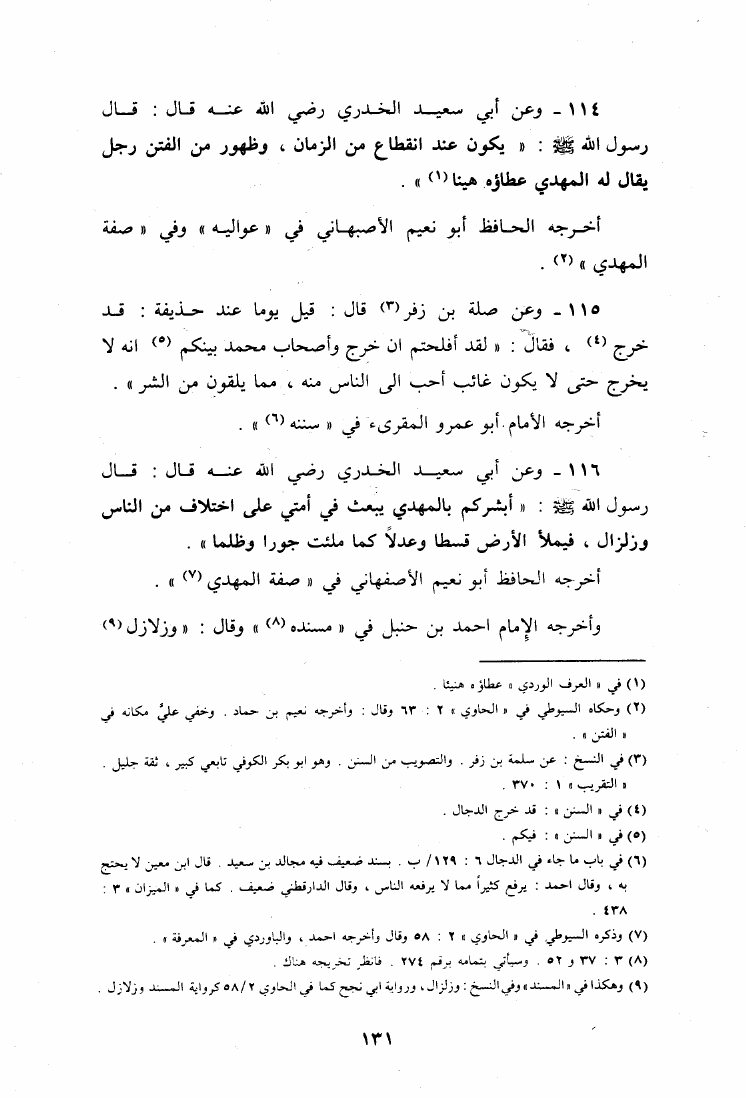 ١١٤ ـ وعن أبي سعيـد الخـدري رضي الله عنـه قـال : قـال
رسول الله ﷺ : « يكون عند انقطاع من الزمان ، وظهور من الفتن رجل
يقال له المهدي عطاؤه هينا (١) » .
أخـرجه الحـافظ أبو نعيم الأصبهـاني في « عواليـه » وفي « صفة
المهدي » (٢) .
١١٥ ـ وعن صلة بن زفر (٣) قال : قيل يوما عند حـذيفة : قـد
خرج (٤) ، فقال : « لقد أفلحتم ان خرج وأصحاب محمد بينكم (٥) انه لا
يخرج حتى لا يكون غائب أحب الى الناس منه ، مما يلقون من الشر » .
أخرجه الأمام أبو عمرو المقرىء في « سننه (٦) » .
١١٦ ـ وعن أبي سعيـد الخـدري رضي الله عنـه قـال : قـال
رسول الله ﷺ : « أبشركم بالمهدي يبعث في أمتي على اختلاف من الناس
وزلزال ، فيملأ الأرض قسطا وعدلاً كما ملئت جورا وظلما » .
أخرجه الحافظ أبو نعيم الأصفهاني في « صفة المهدي (٧) » .
وأخرجه الإمام احمد بن حنبل في « مسنده (٨) » وقال : « وزلازل (٩)
(١) في « العرف الوردي » عطاؤه هنيئا .
(٢) وحكاه السيوطي في « الحاوي » ٢ : ٦٣ وقال : وأخرجه نعيم بن حماد . وخفي عليُّ مكانه في
« الفتن » .
(٣) في النسخ : عن سلمة بن زفر . والتصويب من السنن . وهو ابو بكر الكوفي تابعي كبير ، ثقة جليل .
« التقريب » ١ : ٣٧٠ .
(٤) في « السنن » : قد خرج الدجال .
(٥) في « السنن » : فيكم .
(٦) في باب ما جاء في الدجال ٦ : ١٢٩/ ب . بسند ضعيف فيه مجالد بن سعيد . قال ابن معين لا يحتج
به ، وقال احمد : يرفع كثيراً مما لا يرفعه الناس ، وقال الدارقطني ضعيف . كما في « الميزان » ٣ :
٤٣٨ .
(٧) وذكره السيوطي في « الحاوي » ٢ : ٥٨ وقال وأخرجه احمد ، والباوردي في « المعرفة » .
(٨) ٣ : ٣٧ و ٥٢ . وسيأتي بتمامه برقم ٢٧٤ . فانظر تخريجه هناك .
(٩) وهكذا في « المسند » وفي النسخ : وزلزال ، ورواية ابي نجح كما في الحاوي ٥٨/٢ كرواية المسند وزلازل .
١٣١